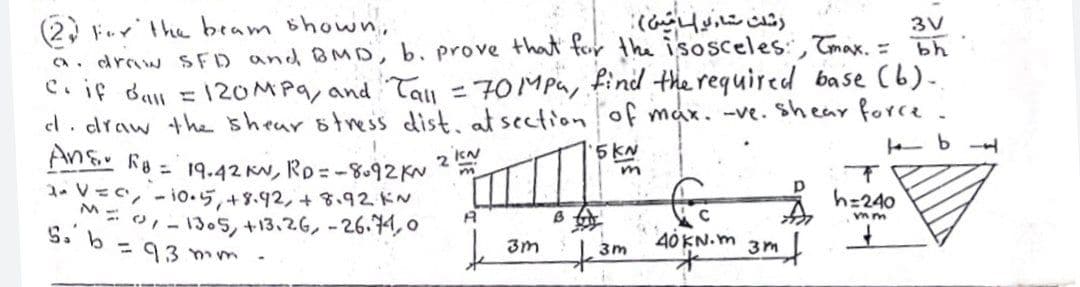 (2) For the beam shown,
(مثلث متساوي الساقين)
a. draw SFD and BMD, b. prove that for the isosceles, τmax. = 3V/bh
c. if σall = 120MPa, and τall = 70MPa, find the required base (b).
d. draw the shear stress dist. at section of max. -ve. shear force.
Ans. RB = 19.42 KN, RD = -8.92 KN
2. V = 0, -10.5, +8.92, +8.92 KN
M = 0, -13.5, +13.26, -26.74, 0
b = 93 mm.
2 KN/m
5 KN/m
b
h=240 mm
A
B
C
D
40 KN.m
3m
3m
3m